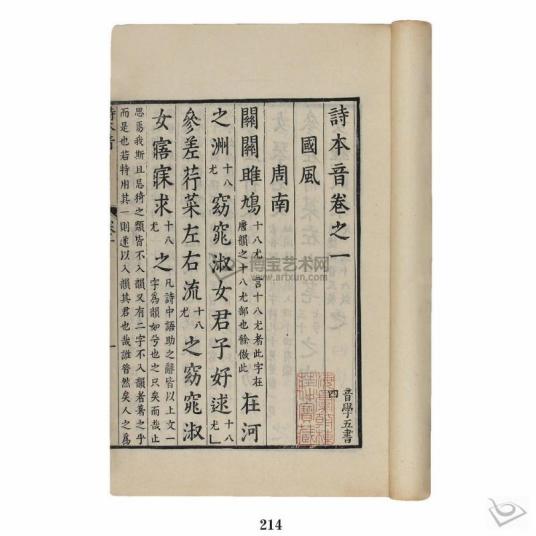 詩本音卷之一
音學五書
四
國風
周南
關關雎鳩 十八尤 言十八尤者此字在唐韻之十八尤部也餘倣此 在河
之洲 十八尤 窈窕淑女君子好逑 十八尤
參差荇菜左右流 十八尤 之窈窕淑
女寤寐求 十八尤 之 凡詩中語助之辭皆以上文一字為韻如兮也之只矣而哉止
思焉我斯且忌猗之類皆不入韻又有二字不入韻者著之乎
而是也若特用其一則遂以入韻其君也哉誰昔然矣人之為
詩本音
卷一
一
博宝艺术网
www.artxun.com
214